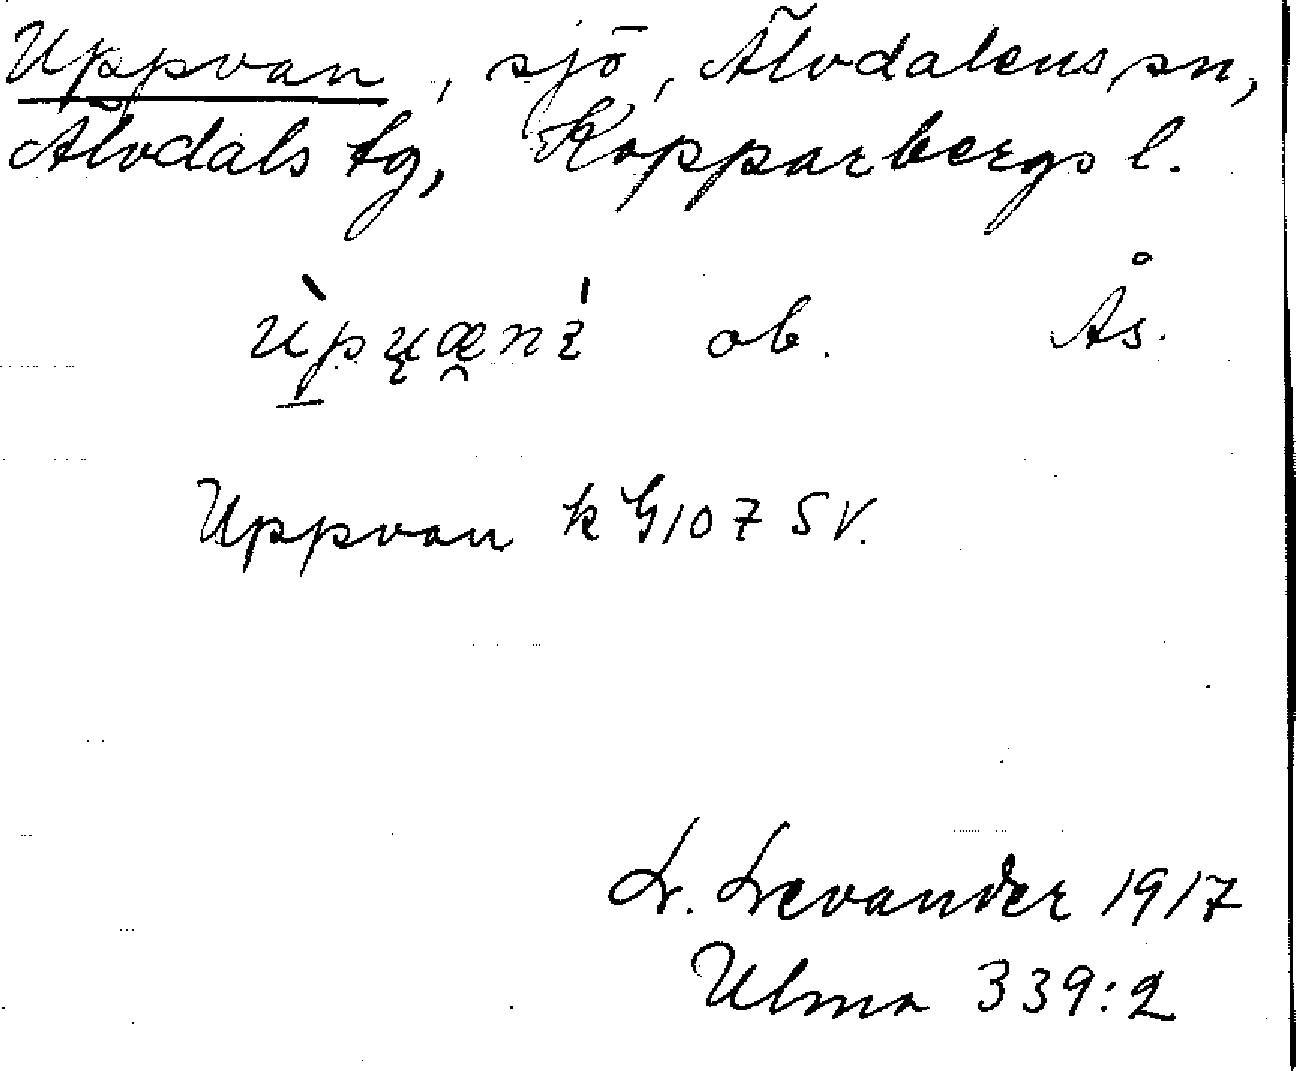 Uppvan, sjö, Älvdalens sn,
Älvdals tg, Kopparbergs l.
ob. Ås.
Uppvan k G107 SV.
L. Levander 1917
Ulma 339:2